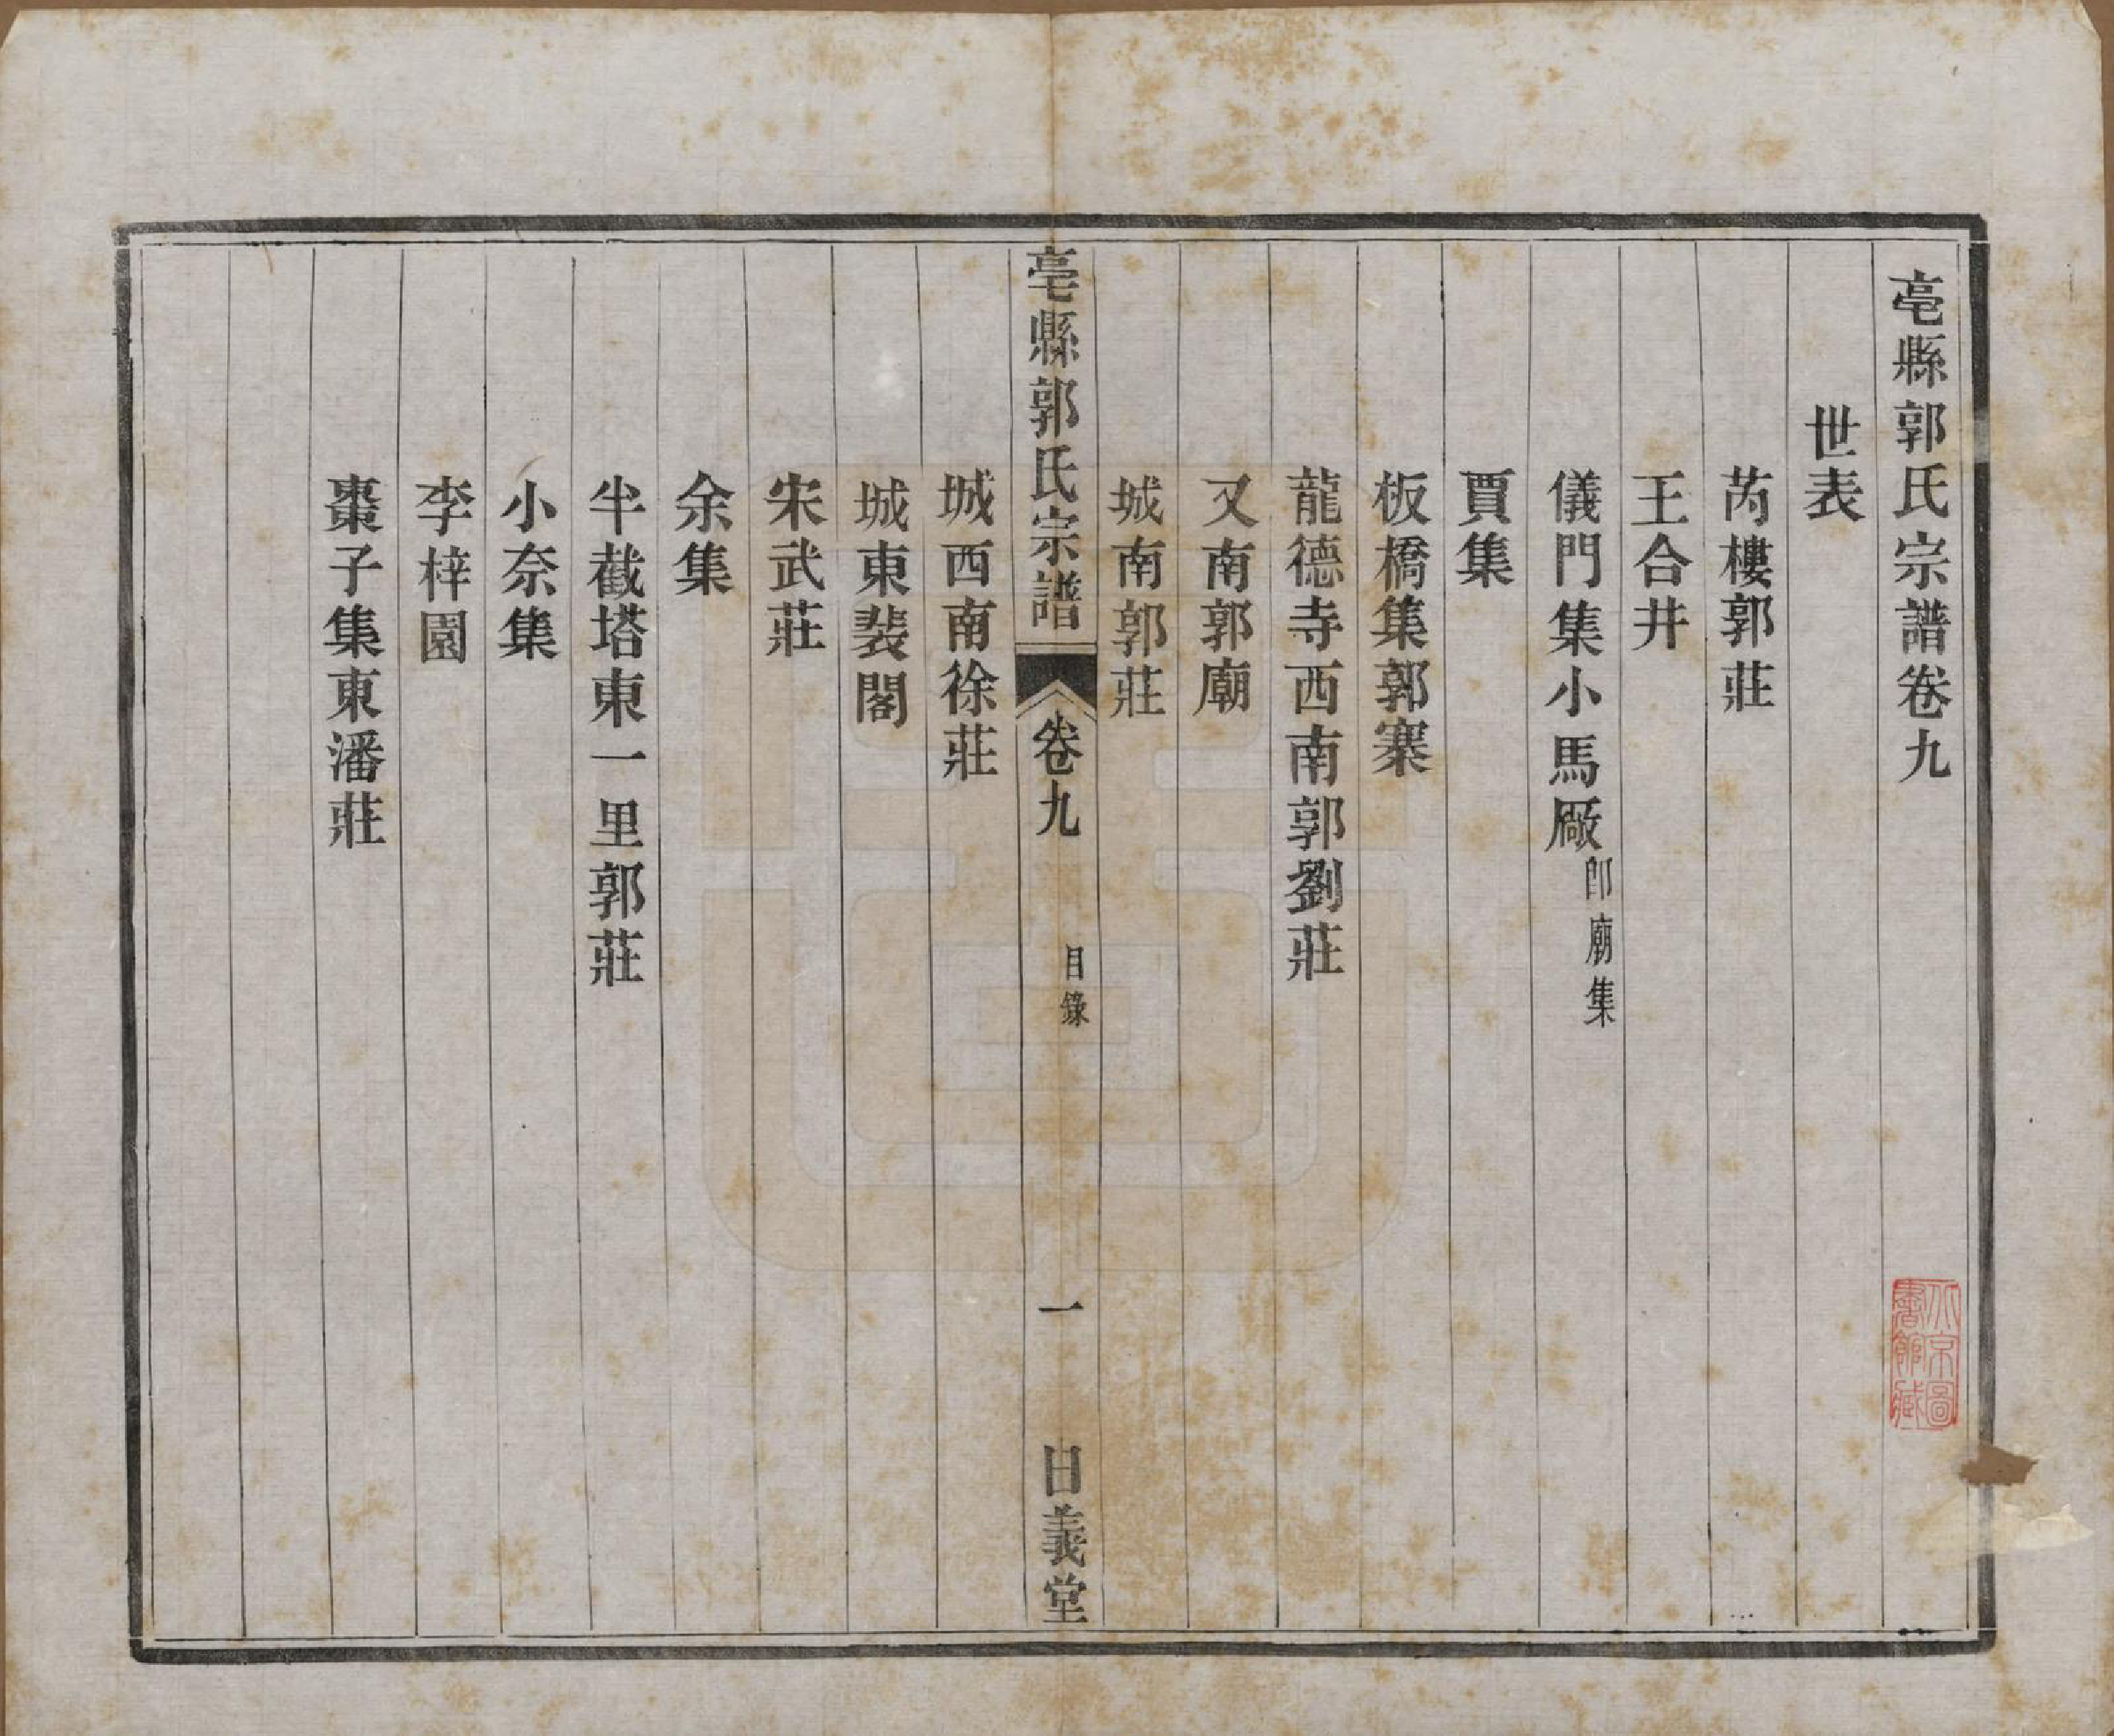 亳縣郭氏宗譜卷九
世表
芮樓郭莊
王合井
儀門集小馬廠即廟集
賈集
板橋集郭寨
龍德寺西南郭劉莊
又南郭廟
城南郭莊
亳縣郭氏宗譜 卷九 目錄 一 日義堂
城西南徐莊
城東裴閣
宋武莊
余集
半截塔東一里郭莊
小奈集
李梓園
棗子集東潘莊
北京圖書館藏